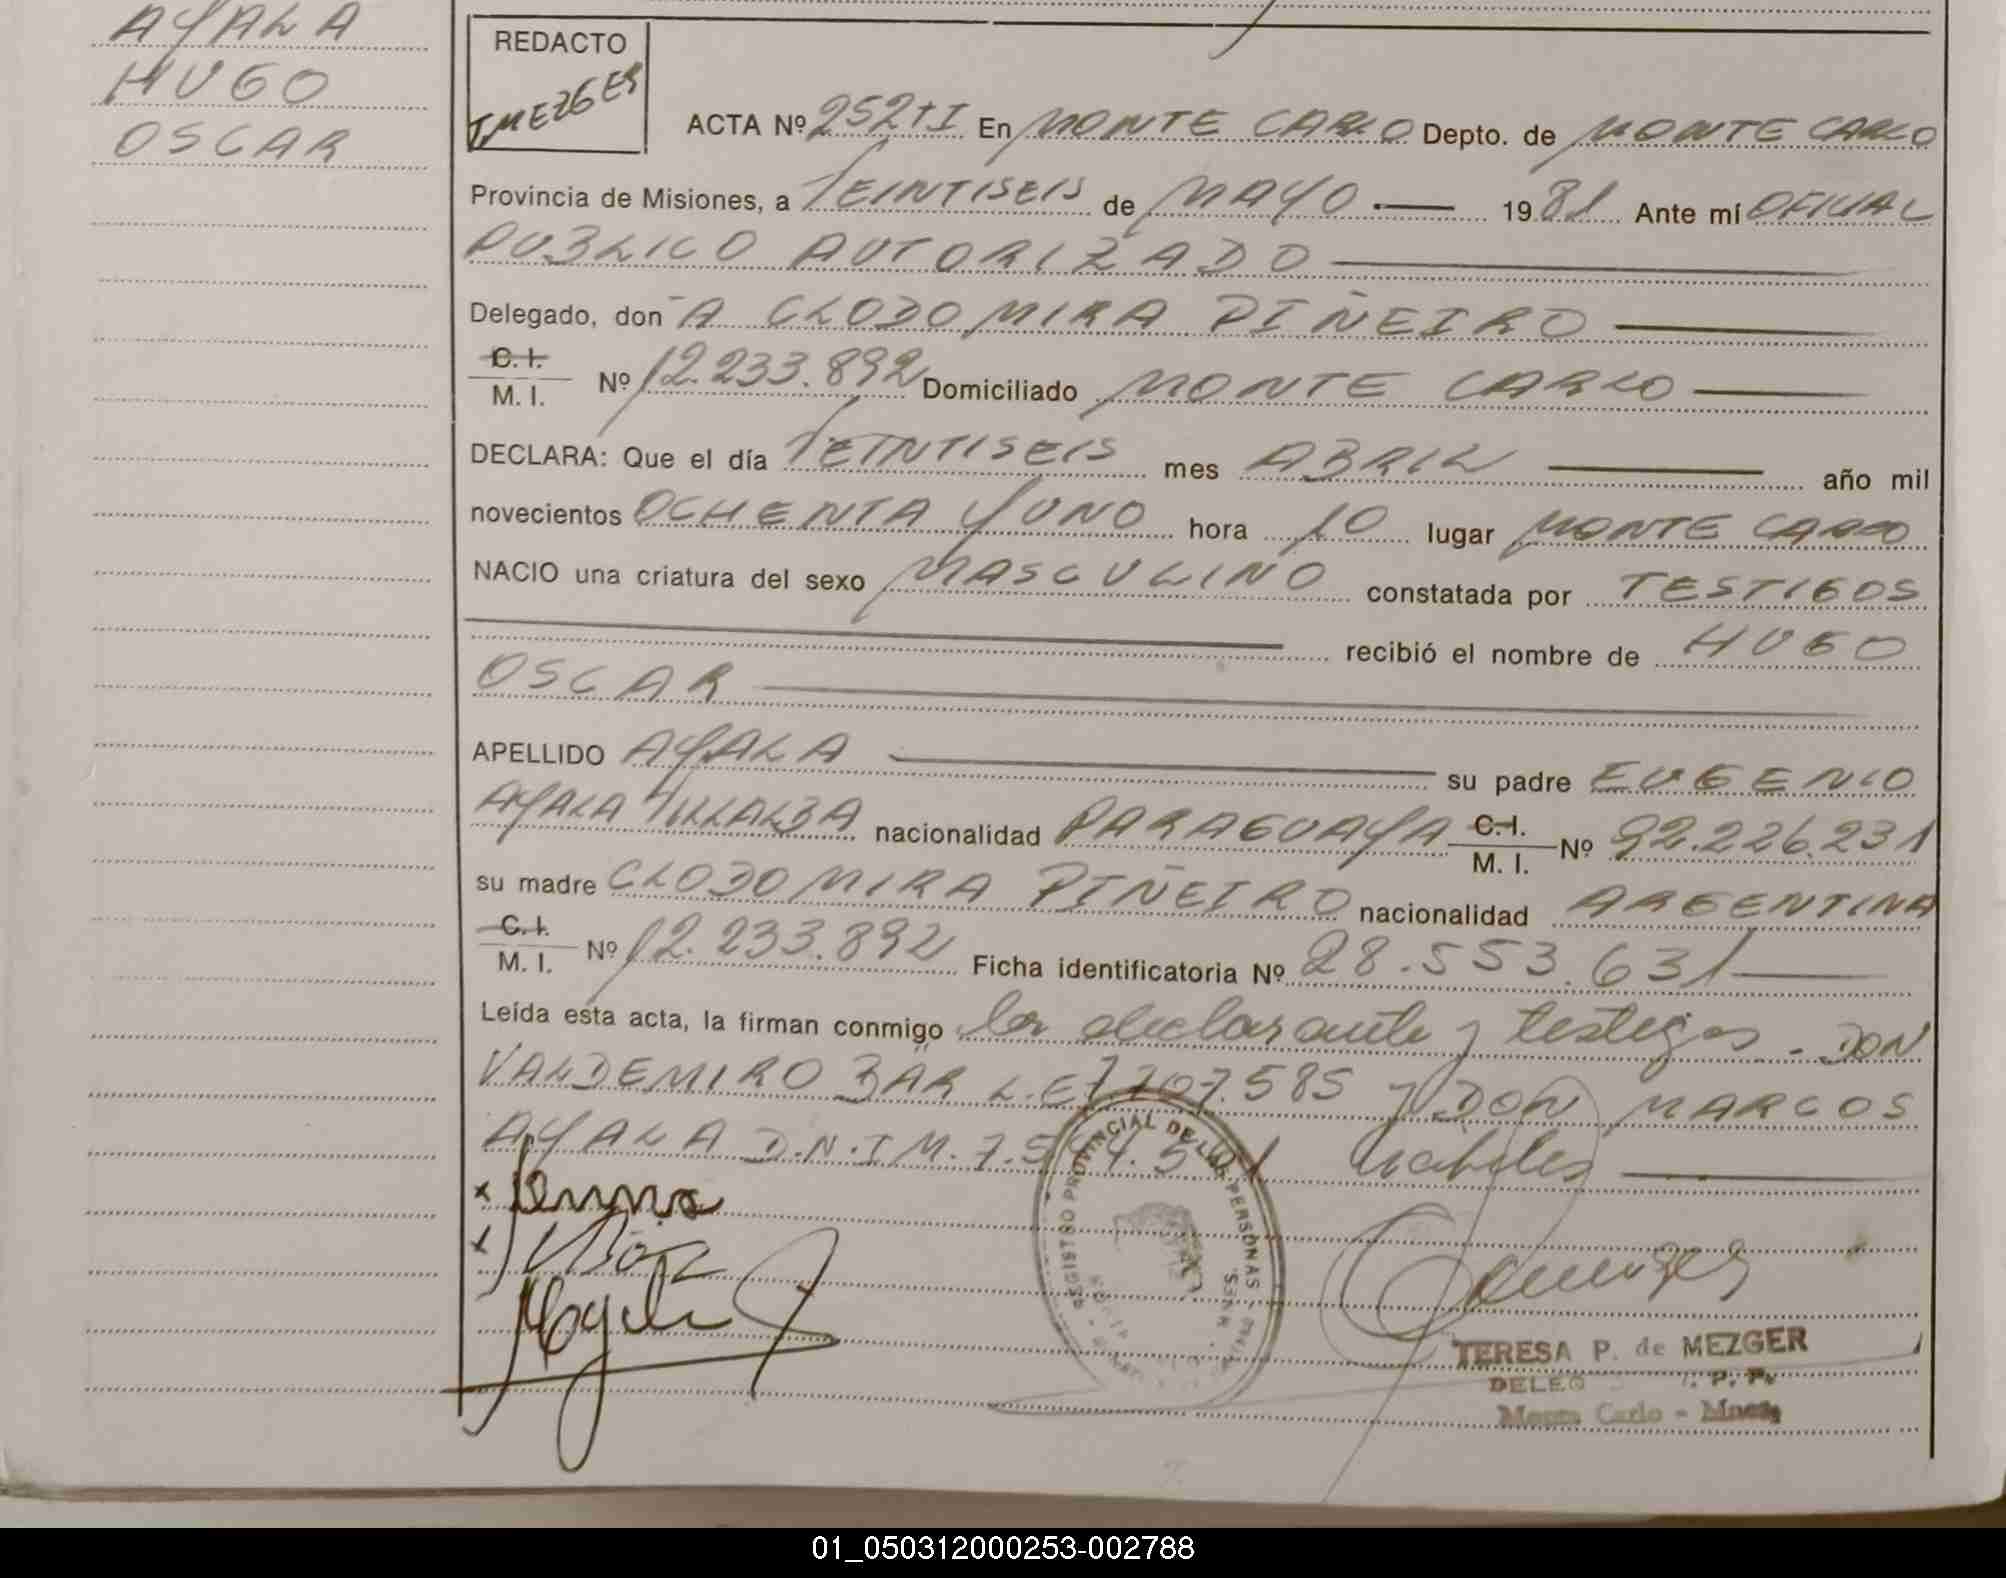 AYALA
HUGO
OSCAR
REDACTO
T. MEZGER
ACTA Nº 252 TI En MONTE CARLO Depto. de MONTE CARLO
Provincia de Misiones, a VEINTISEIS de MAYO 1981 Ante mí OFICIAL
PUBLICO AUTORIZADO
Delegado, doñA CLODOMIRA PIÑEIRO
C.I. M. I. Nº 12.233.892 Domiciliado MONTE CARLO
DECLARA: Que el día VEINTISEIS mes ABRIL año mil
novecientos OCHENTA Y UNO hora 10 lugar MONTE CARLO
NACIO una criatura del sexo MASCULINO constatada por TESTIGOS
recibió el nombre de HUGO
OSCAR
APELLIDO AYALA su padre EUGENIO
AYALA VILLALBA nacionalidad PARAGUAYA C.I. M. I. Nº 92.226.231
su madre CLODOMIRA PIÑEIRO nacionalidad ARGENTINA
C.I. M. I. Nº 12.233.892 Ficha identificatoria Nº 28.553.631
Leída esta acta, la firman conmigo la declarante y testigos. DON
VALDEMIRO BAR L.E. 7.707.585 y DON MARCOS
AYALA D.N.I M. 7.5 4.5 1 habiles
REGISTRO PROVINCIAL DE LAS PERSONAS
TERESA P. de MEZGER
DELEG R. P. P.
Monte Carlo - Mnes
01_050312000253-002788